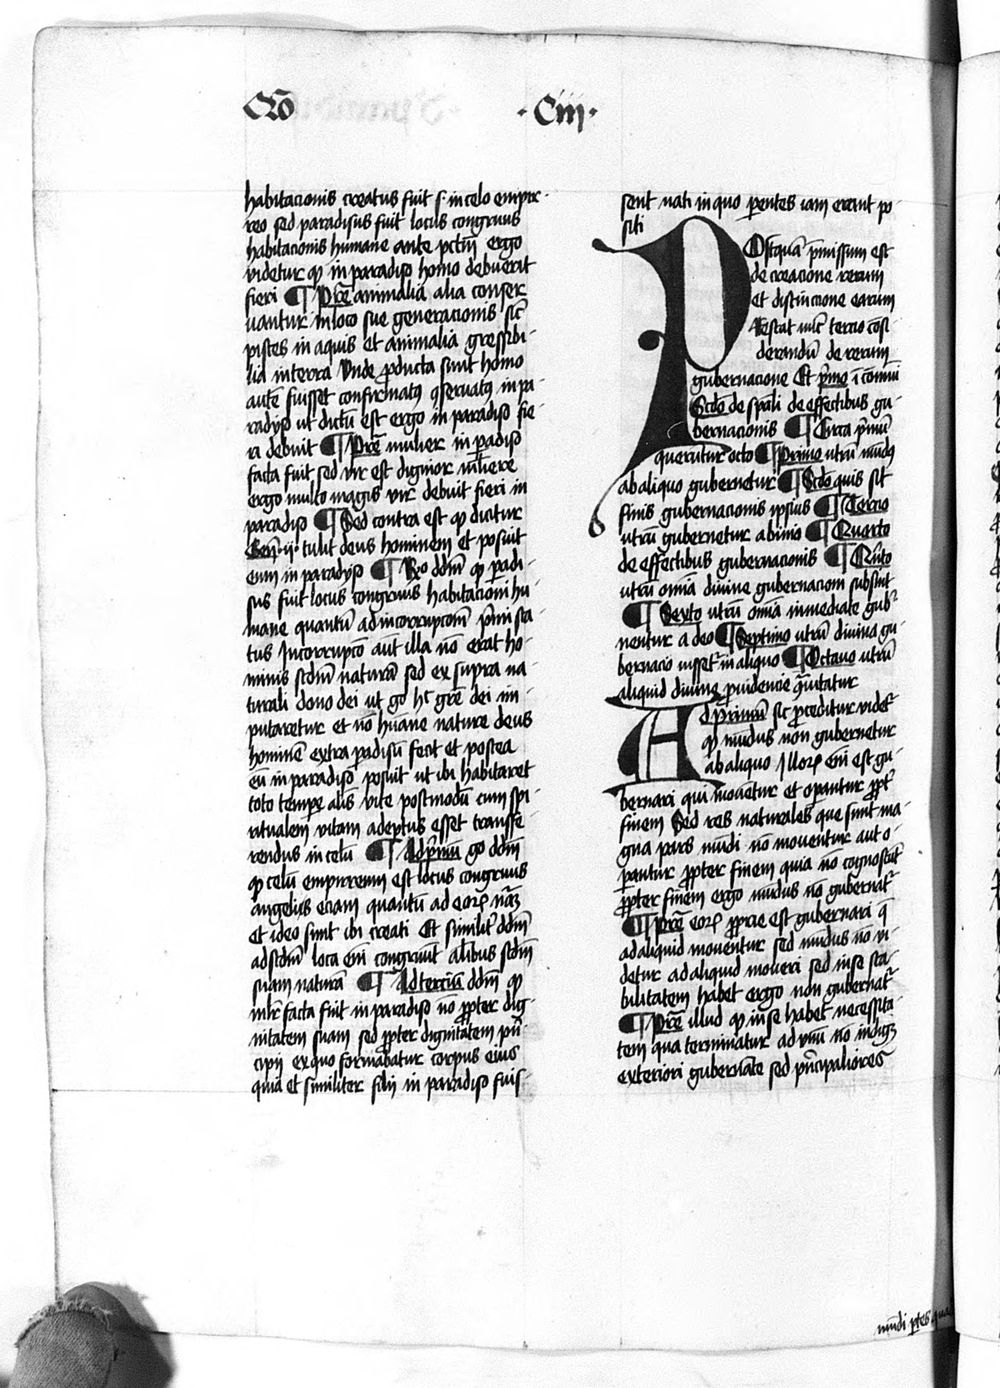 Qo · Ciij ·
habitacionis creatus fuit s. in celo empir
reo sed paradisus fuit locus congruus
habitacionis humane ante pctm ergo
videtur q in paradiso homo debuerit
fieri ¶ Pre animalia alia conser
uantur in loco sue generacionis sic
pisces in aquis et animalia gressibi
lia in terra Unde producta sunt homo
aute fuisset confirmatus conseruatus in pa
radyso ut dictu est ergo in paradiso fie
ri debuit ¶ Pre mulier in padiso
facta fuit sed vir est dignior muliere
ergo multo magis vir debuit fieri in
paradiso ¶ Sed contra est q dicitur
Gen ij tulit deus hominem et posuit
eum in paradyso ¶ Ro ddm q padi
sus fuit locus congruus habitacioni hu
mane quantu ad incorrupcom primi sta
tus Incorrupco aut illa no erat ho
minis scdm natura sed ex supra na
turali dono dei ut go hc gre dei im
putaretur et no humane nature deus
homine extra padisu fecit et postea
eu in paradiso posuit ut ibi habitaret
toto tempe alis vite postmodu cum spi
ritualem vitam adeptus esset transfe
rendus in celu ¶ Ad primu go ddm
q celu empirreum est locus congruus
angelis eciam quantu ad eorum natura
et ideo sunt ibi creati Et similit ddm
ad scdm loca eni congruut alibus scdm
suam natura ¶ Ad tercium ddm q
mlr facta fuit in paradiso no propter dig
nitatem suam sed propter dignitatem pn
cipii ex quo formabatur corpus eius
quia et similiter filii in paradiso fuis
sent nati in quo pentes iam erant po
siti
Postqua pmissum est
de creacione rerum
et distinctione earum
Restat nuc tercio cosi
derandu de rerum
gubernacione Et primo i comuni
Scdo de spali de effectibus gu
bernacionis ¶ Circa primu
queruntur octo ¶ Primo utru mudus
ab aliquo gubernetur ¶ Scdo quis sit
finis gubernacionis ipsius ¶ Tercio
utru gubernetur ab uno ¶ Quarto
de effectibus gubernacionis ¶ Quinto
utru omia diuine gubernacioni subsint
¶ Sexto utru omia inmediate guber
nentur a deo ¶ Septimo utru diuina gu
bernacio cassetur in aliquo ¶ Octauo utru
aliquid diuine prouidencie contranitatur
Ad primu sic proceditur videtur
q mudus non gubernetur
ab aliquo Illorum eni est gu
bernari qui mouetur et operantur propter
finem Sed res naturales que sunt ma
gna pars mudi no mouentur aut o
perantur propter finem quia no cognoscut
propter finem ergo mudus no gubernatur
¶ Pre eorum proprie est gubernari que
ad aliquid mouentur sed mudus no vi
detur ad aliquid moueri sed in se sta
bilitatem habet ergo non gubernatur
¶ Pre illud q in se habet necessita
tem qua terminatur ad unu no indiget
exteriori gubernate sed principaliores
mudi ptes qua